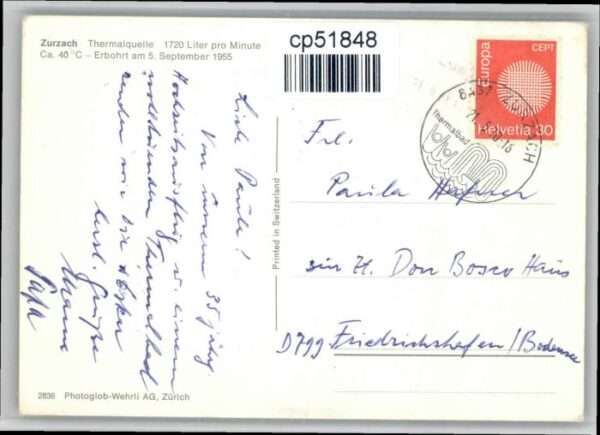 Zurzach Thermalquelle 1720 Liter pro Minute
Ca. 40 °C – Erbohrt am 5. September 1955
cp51848
europa
CEPT
Helvetia 30
ZURZACH
Thermalbad
Liebe Paula!
Von unserem 35 jährg
Hochzeitsausflug u. einem
wohltuenden Thermalbad
senden wir die
herzl. Grüße
Mama
Papa
Printed in Switzerland
Frl.
Paula
Don Bosco Haus
D799 Friedrichshafen/Bodensee
2836 Photoglob-Wehrli AG, Zürich